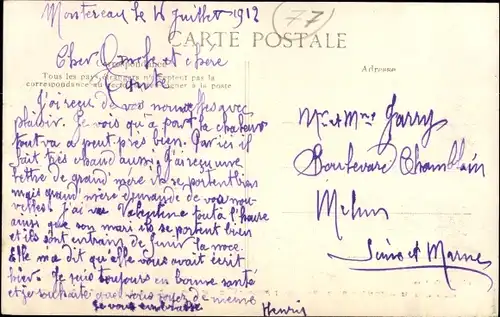 Montereau le 16 juillet 1912
77
CARTE POSTALE
Cher Oncle et chère
Tante
Correspondance
Tous les pays étrangers n'acceptent pas la
correspondance au recto se renseigner à la poste
Adresse
J'ai reçu de vos nouvelles avec
plaisir. Je vois qu'à part la chaleur
tout va à peut près bien. Par ici il
fait très chaud aussi. J'ai reçu une
lettre de grand'mère ils se portent bien
mais grand'mère demande de vos nou-
velles. J'ai vu Valentine tout à l'heure
ainsi que son mari ils se portent bien
et ils sont entrain de finir la noce.
Elle m'a dit qu'elle vous avait écrit
hier. Je suis toujours en bonne santé
et je souhaite que vous soyez de même
Je vous embrasse
Henri
Mr et Mme Garry
Boulevard Chamblain
Melun
Seine et Marne